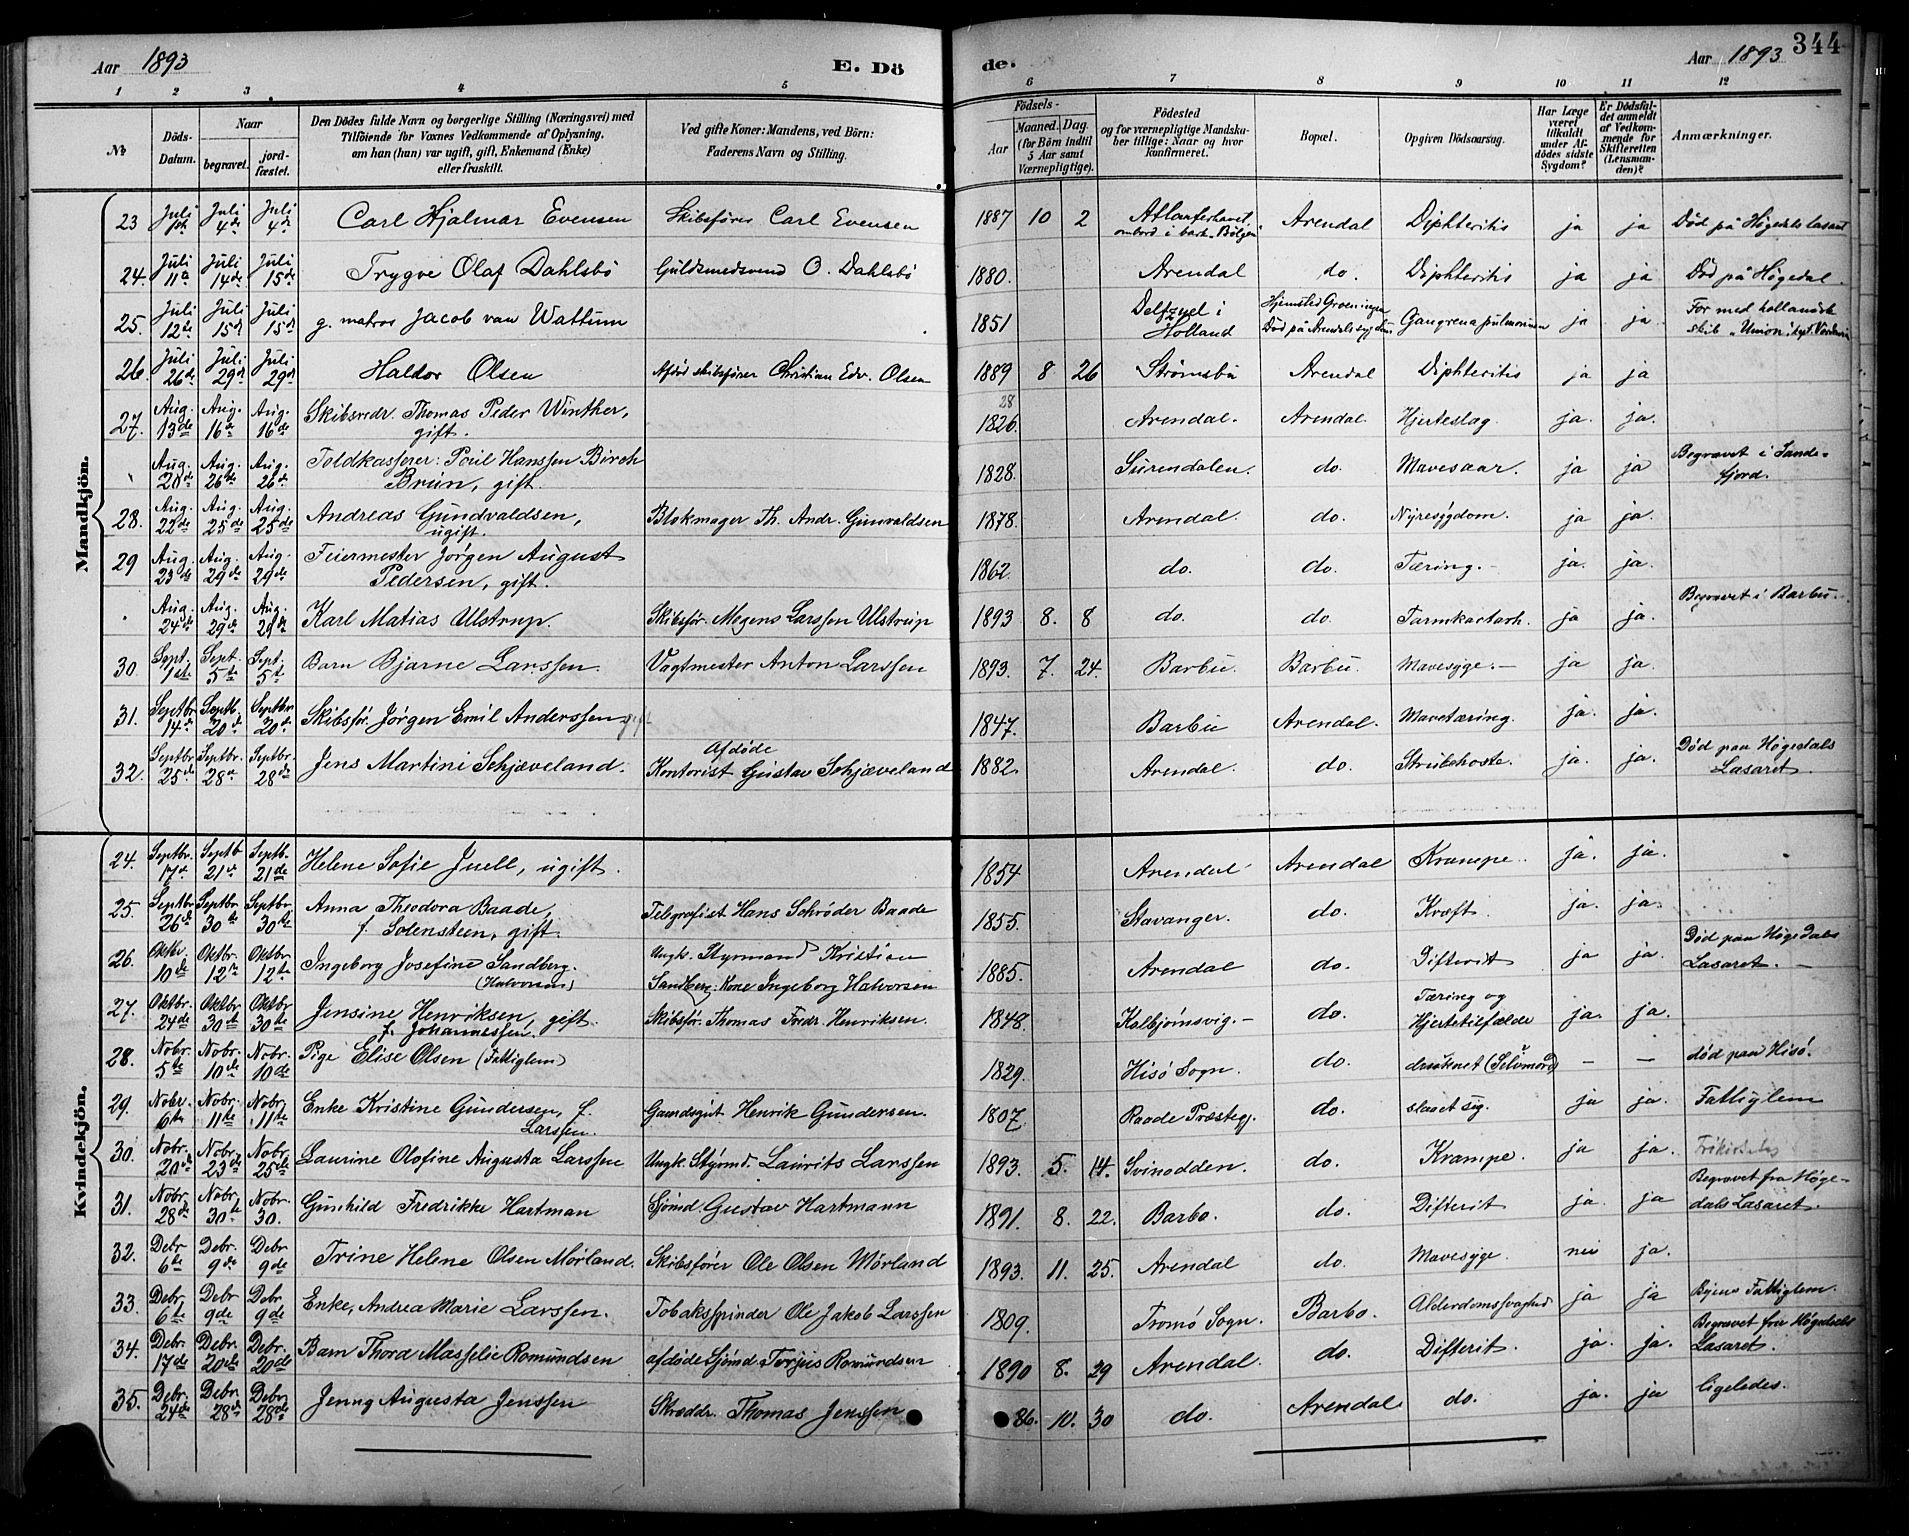 Aar 1893
E. Dö
de.
Aar 1893
344
1 2 3 4 5 6 7 8 9 10 11 12
No
Döds-Datum.
Naar
begravet.
jord-fæstet.
Den Dödes fulde Navn og borgerlige Stilling (Næringsvei) med
Tilföiende for Voxnes Vedkommende af Oplysning,
om han (hun) var ugift, gift, Enkemand (Enke)
eller fraskilt.
Ved gifte Koner: Mandens, ved Börn:
Faderens Navn og Stilling.
Födsels-
Aar
Maaned. Dag.
(for Börn indtil
5 Aar samt
Værnepligtige).
Födested
og for værnepligtige Mandska-
ber tillige: Naar og hvor
konfirmeret.
Bopæl.
Opgiven Dödsaarsag.
Har Læge
været
tilkaldt
under Af-
dödes sidste
Sygdom?
Er Dödsfal-
det anmeldt
af Vedkom-
mende for
Skifteretten
(Lensman-
den)?
Anmærkninger.
Mandkjön.
23 Juli Juli 4de Juli 4de Carl Hjalmar Evensen Skibsfører Carl Evensen 1887 10 2 Atlanterhavet ombord i bark "Bølgen" Arendal Diphteritis ja ja Død på Høgedals lasaret
24. Juli 11te Juli 14de Juli 15de Trygve Olaf Dahlsbö Guldsmedsvend O. Dahlsbö 1880. Arendal do. Diphteritis ja ja Död på Högedal.
25. Juli 12te Juli 15de Juli 15de g. matros Jacob van Wattum 1851 Delfzyel i Holland Hjemsted Groeningen Död på Arendals sygehus Gangrena pulmonum ja ja. For med hollandsk skib "Union",
26. Juli 26de Juli 29de Juli 29de Haldor Olsen Afdød skibsfører Christian Edv. Olsen 1889 8 26 Strömsbu Arendal Diphteritis ja ja
27. Aug. 13de Aug. 16de Aug. 16de Skibsredr. Thomas Peder Winther, gift. 28 1826. Arendal. Arendal. Hjerteslag ja. ja.
Aug. 20de Aug. 26de Aug. 26de Toldkasserer: Poul Hanssen Birch Brun, gift. 1828. Surendalen. do. Mavesaar. ja ja Begravet i Sande-fjord.
28. Aug. 22de Aug. 25de Aug. 25de Andreas Gundvaldsen, ugift. Blokmager Th. Andr. Gunvaldsen 1878. Arendal. do. Nyresygdom. ja ja.
29 Aug. 23de Aug. 29de Aug. 29de Feiermester Jörgen August Pedersen, gift. 1862. do. do. Tæring. ja. ja.
Aug. 24de Aug. 29de Aug. 29de Karl Matias Ulstrup. Skibsfør. Mogens Larssen Ulstrup 1893 8. 8 do. do. Tarmkactarh. ja ja. Begravet i Barbu.
30. Sept. 1ste Sept. 5te Sept. 5te Barn Bjarne Larssen. Vagtmester Anton Larssen 1893. 7. 24. Barbu. Barbu. Mavesyge. ja ja.
31. Septbr 14de Septb. 20de Septbr. 20de Skibsför. Jörgen Emil Anderssen gift 1847. Barbu Arendal. Mavetæring. ja. ja.
32. Septbr. 25de Septbr. 28de Septbr. 28de Jens Martini Schjæveland. Afdøde Kontorist Gustav Schjæveland 1882. Arendal. do. Strubehoste. ja. ja. Død paa Høgedals Lasaret.
Kvindekjön.
24. Septbr. 17de Septb 21de Septb. 21de Helene Sofie Juell, ugift. 1854 Arendal Arendal Krampe. ja. ja.
25. Septbr. 26de Septbr. 30te Septbr 30te Anna Theodora Baade, f. Solensteen, gift. Telegrafist Hans Schröder Baade 1855. Stavanger. do. Kræft. ja. ja.
26. Oktbr. 10de Oktbr. 12te Oktbr. 12te Ingeborg Josefine Sandberg. (Halvorsen) Ungk. Styrmand Kristian Sandberg. Kone Ingeborg Halvorsen 1885. Arendal do. Difterit ja ja. Død paa Høgedals Lasaret.
27. Oktbr. 24de Oktbr. 30te Oktbr. 30te Jensine Henriksen, gift. f. Johannessen. Skibsför. Thomas Fredr. Henriksen. 1848. Kalbjørnsvig. do. Tæring og Hjertetilfælde ja. ja.
28. Nobr. 5te Nobr. 10de Nobr. 10de Pige Elise Olsen (Fattiglem) 1829. Hisö Sogn. do. druknet (Selvmord) — — død paa Hisö.
29. Nobr. 6te Nobr. 11te Nobr. 11te Enke Kristine Gundersen, f. Larssen. Gaardsgut Henrik Gundersen. 1807. Raade Præsteg. do. slaaet sig. ja ja. Fattiglem
30. Nobr. 20de Nobr. 23de Nobr. 25de Laurine Olofine Augusta Larssen Ungk. Styrmd. Laurits Larssen 1893. 5. 14. Svinodden. do. Krampe. ja ja.
31. Nobr. 28de Nobr. 30te Nobr. 30. Gunhild Fredrikke Hartman Sjömd. Gustav Hartmann 1891. 8. 22. Barbo. do. Difterit ja. ja Begravet fra Høge-dals Lasaret.
32. Debr. 6te Debr. 9de Debr. 9de Trine Helene Olsen Mørland. Skibsfører Ole Olsen Mørland 1893. 11. 25. Arendal do. Mavesyge nei ja.
33. Debr. 6te Debr. 9de Debr. 9de Enke, Andrea Marie Larssen. Tobaksspinder Ole Jakob Larssen 1809. Tromö Sogn. Barbo. Alderdomssvaghed ja ja Byens Fattiglem.
34. Debr. 17de Debr. 20de Debr. 20de Barn Thora Masselie Romundsen afdöde Sjömd. Terjus Romundsen 1890 8. 29 Arendal. do. Difterit ja. ja. Begravet fra Høgedals Lasaret.
35. Debr. 24de Debr. 28de Debr. 28de Jenny Augusta Jenssen Skræddr. Thomas Jenssen 86. 10. 30 do. Arendal. do. ja. ja ligeledes.